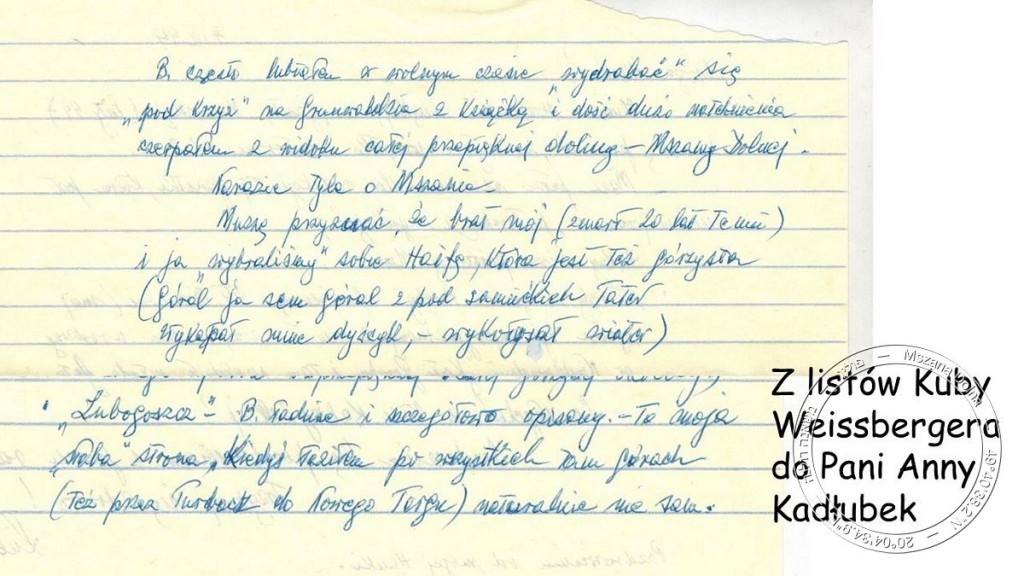 B. często lubiałem w wolnym czasie „wydrabać" się
„pod Krzyż" na Grunwaldzie z książką i dość dużo natchnienia
czerpałem z widoku całej przepięknej doliny – Mszany Dolnej.
Narazie tyle o Mszanie
Muszę przyznać, że brat mój (zmarł 20 lat temu)
i ja „wybraliśmy" sobie Haifę, która jest też górzysta
(góral ja sem góral z pod samiućkich Tater
wykąpał mnie dyszcyk, – wykołysał wiater)
„Lubogoszcz" – B. ładnie i szczegółowo opisany. – To moja
„słaba" strona, Kiedyś łaziłem po wszystkich tam górach
(też przez Turbacz do Nowego Targu) naturalnie nie sam.
Z listów Kuby
Weissbergera
do Pani Anny
Kadłubek
Mszana
49°40'39.2"N
20°04'34.9"